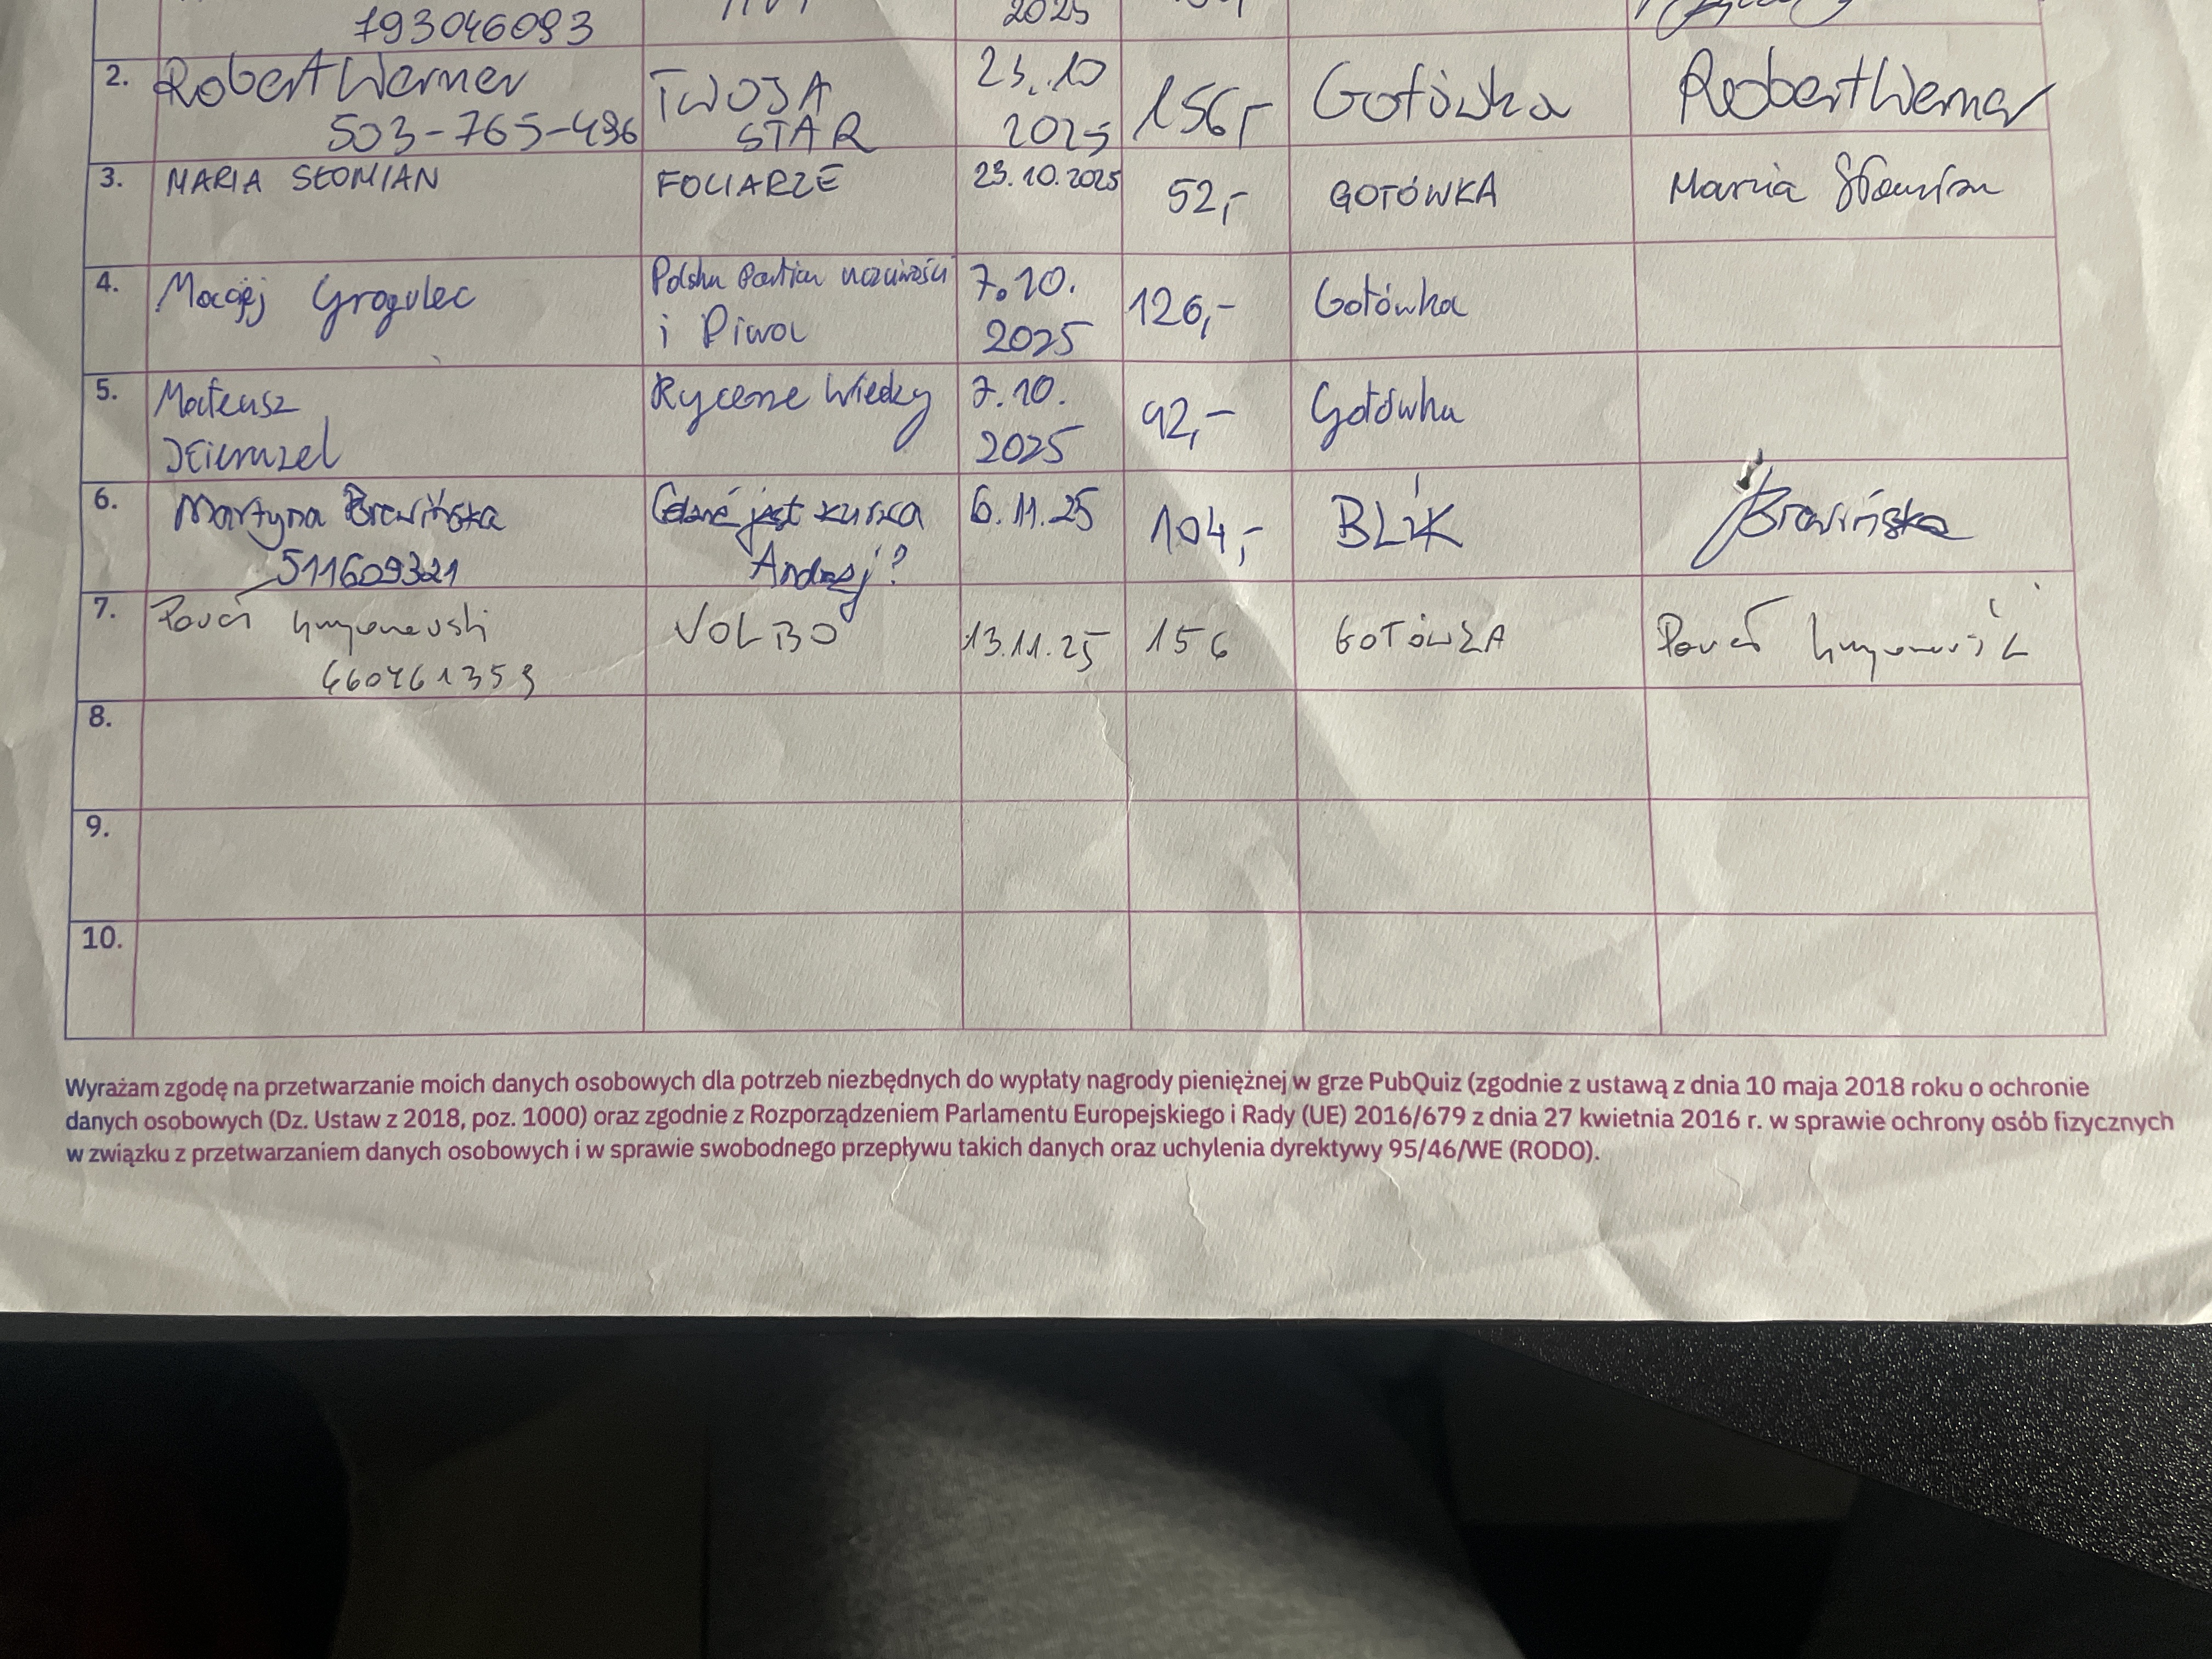 793046093
2025
2. Robert Werner TWOJA 23.10 156,- Gotówka Robert Werner
503-765-496 STAR 2025
3. MARIA SŁOMIAN FOLIARZE 23.10.2025 52,- GOTÓWKA Maria Słomian
4. Maciej Grogulec Polska Partia uczciwości 7.10. 126,- Gotówka
i Piwa 2025
5. Mateusz Rycerze Wiedzy 7.10. 92,- Gotówka
2025
6. Martyna Brewińska Gdzie jest kurza 6.11.25 104,- BLIK Brewińska
511609321 Andrzej?
7. Paweł VOLBO 13.11.25 156 GOTÓWKA Paweł
660461359
8.
9.
10.
Wyrażam zgodę na przetwarzanie moich danych osobowych dla potrzeb niezbędnych do wypłaty nagrody pieniężnej w grze PubQuiz (zgodnie z ustawą z dnia 10 maja 2018 roku o ochronie
danych osobowych (Dz. Ustaw z 2018, poz. 1000) oraz zgodnie z Rozporządzeniem Parlamentu Europejskiego i Rady (UE) 2016/679 z dnia 27 kwietnia 2016 r. w sprawie ochrony osób fizycznych
w związku z przetwarzaniem danych osobowych i w sprawie swobodnego przepływu takich danych oraz uchylenia dyrektywy 95/46/WE (RODO).